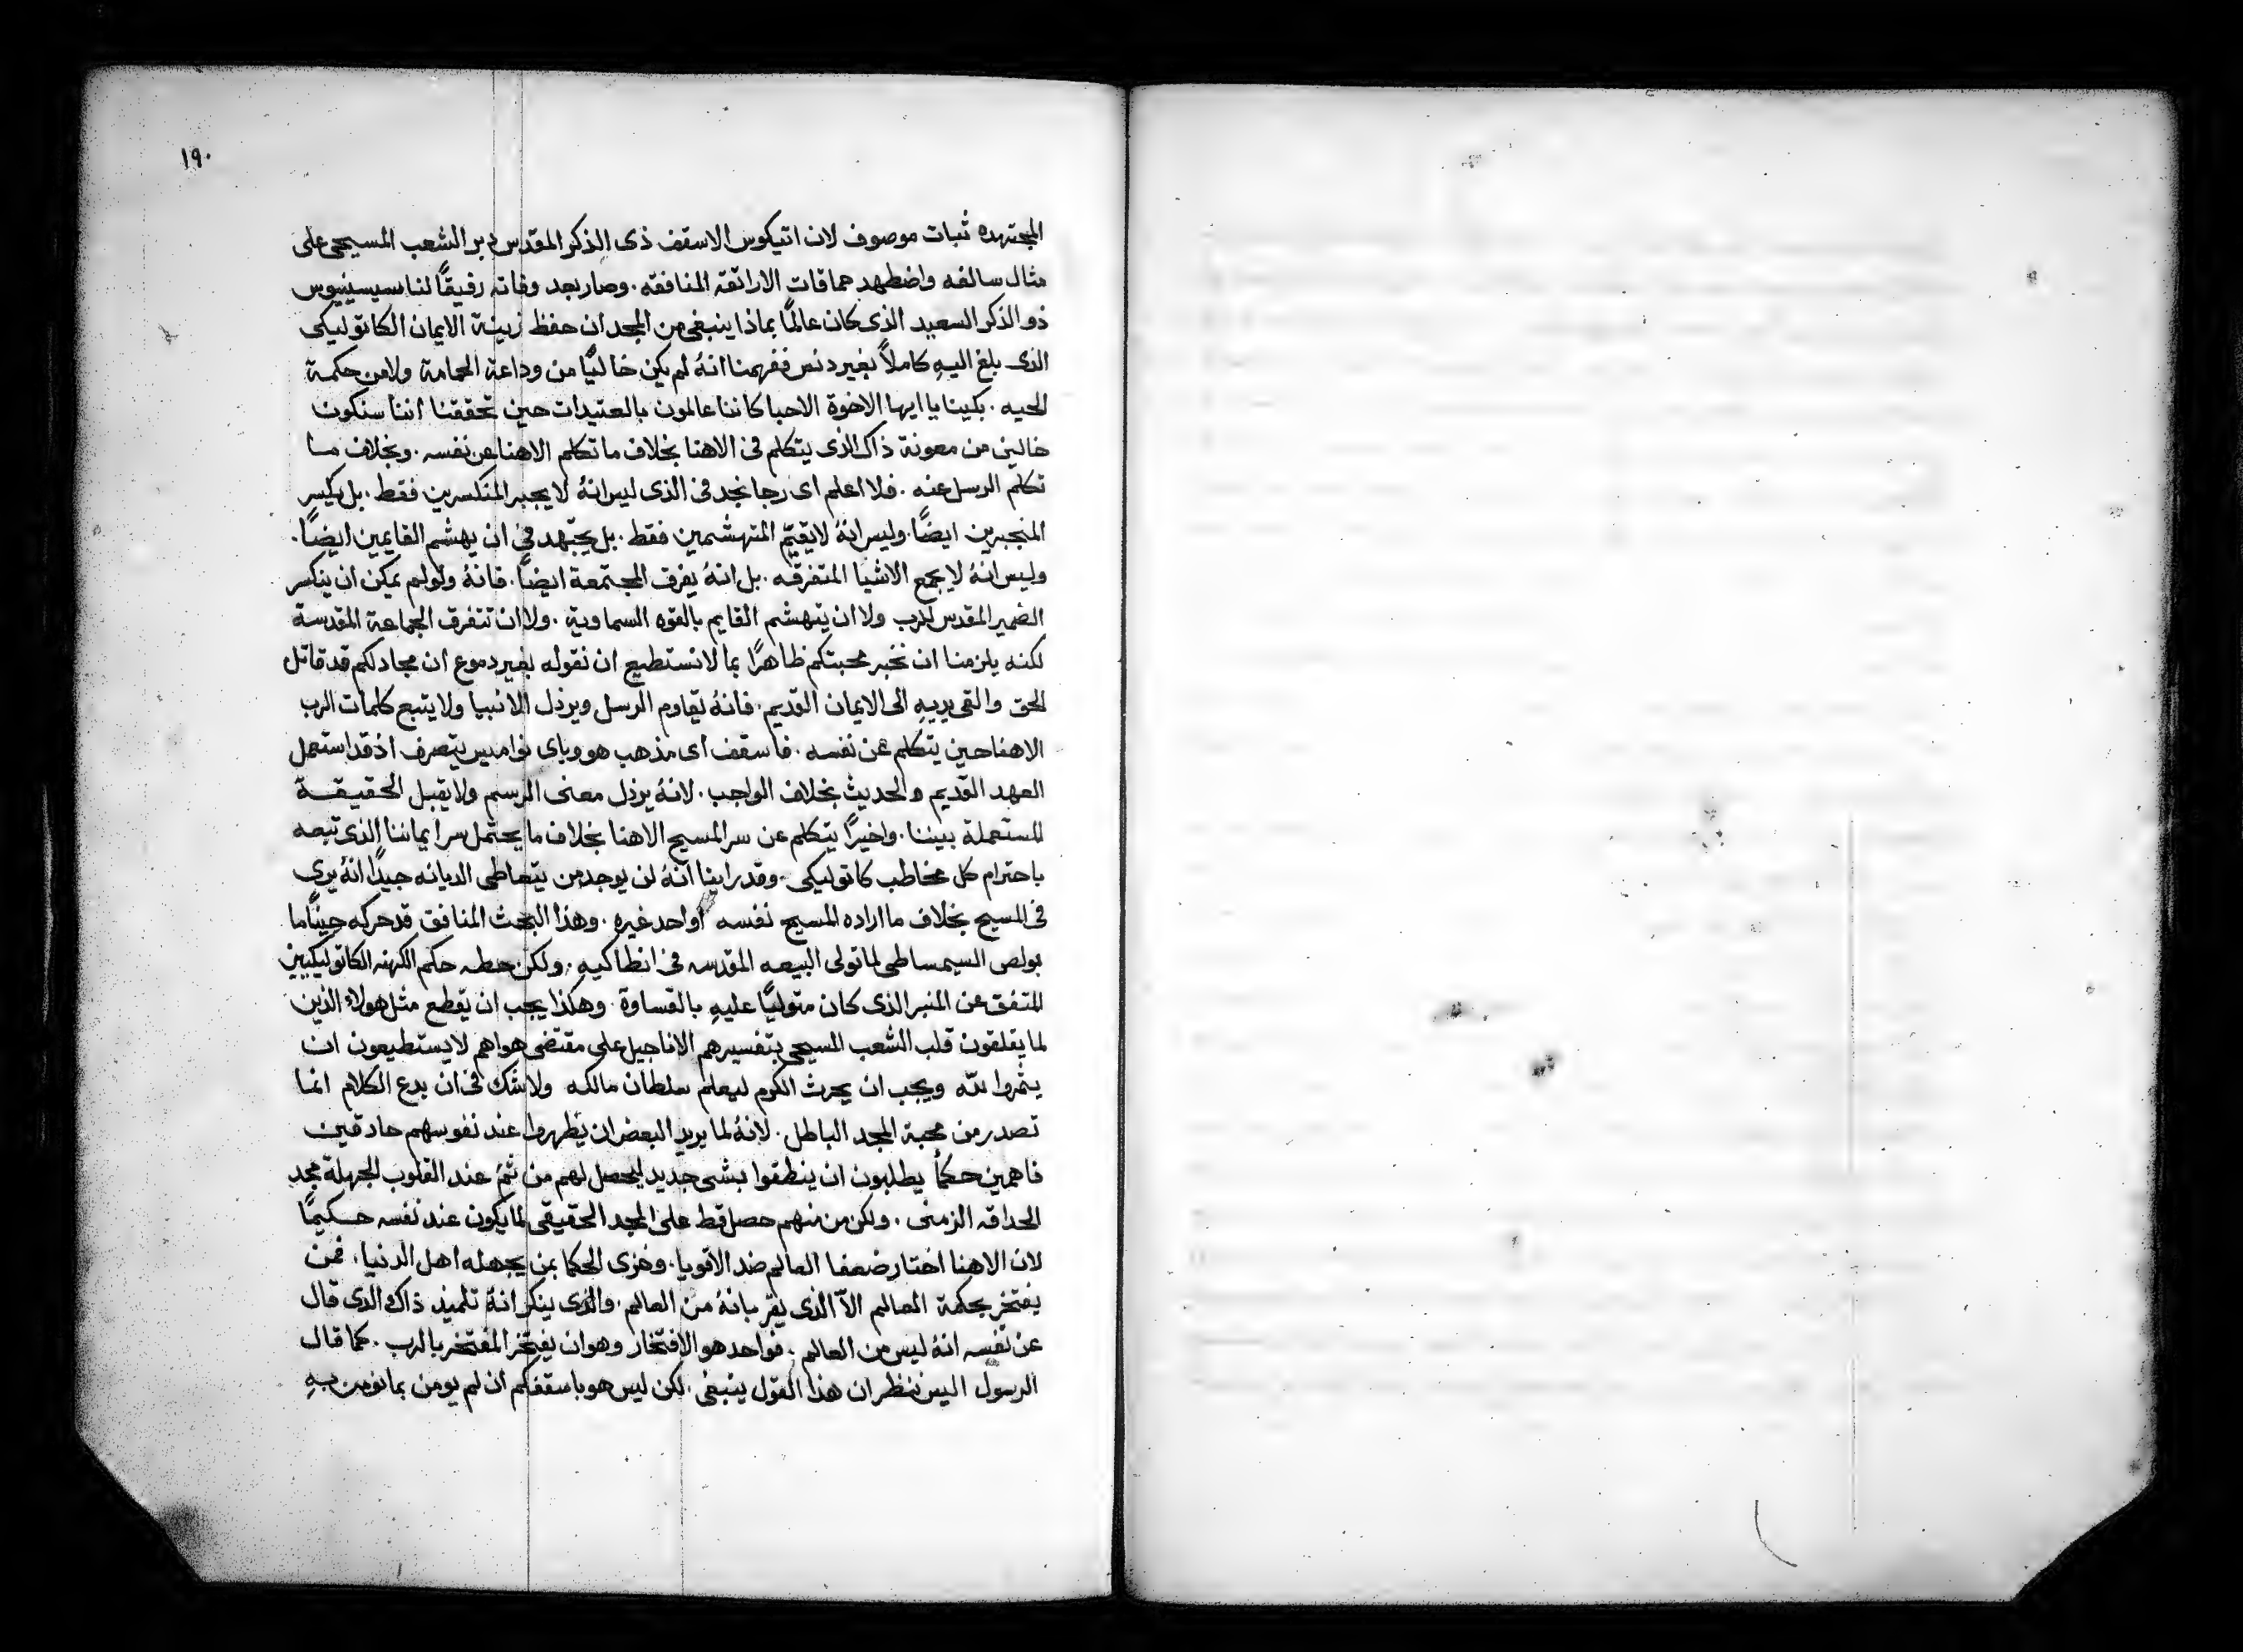 ١٩٠
المجتهده ثبات موصوف لان اتيكوس الاسقف ذى الذكر المقدس دبر الشعب المسيحى على
مثال سالفه واضطهد حماقات الاراتقة المنافقه . وصار بعد وفاته رفيقًا لنا سيسينيوس
ذو الذكر السعيد الذى كان عالمًا بماذا ينبغى من المجد ان حفظ زينة الايمان الكاتوليكى
الذى بلغ اليهِ كاملاً بغير دنس ففهمنا انهُ لم يكن خاليًا من وداعة الحمامة ولا من حكمة
الحيه . بكينا يا ايها الاخوة الاحبا كاننا عالمون بالعتيدات حين تحققنا اننا سنكون
خالين من معونة ذاك الذى يتكلم فى الاهنا بخلاف ما تكلم الاهنا عن نفسه . وبخلاف ما
تكلم الرسل عنه . فلا اعلم اى رجا نجد فى الذى ليس انهُ لا يجبر المنكسرين فقط . بل يكسر
المنجبرين ايضًا . وليس انهُ لا يقيّم المتهشمين فقط . بل يجتهد فى ان يهشم القايمين ايضًا .
وليس انهُ لا يجمع الاشيا المتفرقه . بل انهُ يفرق المجتمعة ايضًا . فانهُ ولو لم يمكن ان ينكسر
الضمير المقدس للرب ولا ان يتهشم القايم بالقوه السماوية . ولا ان تتفرق الجماعة المقدسة
لكنه يلزمنا ان نخبر محبتكم ظاهرًا بما لا نستطيع ان نقوله بغير دموع ان مجادلكم قد قاتل
الحق والقى يديهِ الى الايمان القديم . فانهُ يقاوم الرسل ويرذل الانبيا ولا يتبع كلمات الرب
الاهنا حين يتكلم عن نفسه . فاسقف اى مذهب هو وباى نواميس يتصرف اذ قد استعمل
العهد القديم والحديث بخلاف الواجب . لانهُ يرذل معنى الرسم ولا يقبل الحقيقة
المستعملة بيننا . واخيرًا يتكلم عن سر المسيح الاهنا بخلاف ما يحتمل سر ايماننا الذى تبعه
باحترام كل مخاطب كاتوليكى . وقد راينا انهُ لن يوجد من يتعاطى الديانه جيدًا انهُ يرى
فى المسيح بخلاف ما اراده المسيح نفسه او احد غيره . وهذا البحث المنافق قد حركه حينًا ما
بولص السيمساطى لما تولى البيعه المقدسه فى انطاكيه . ولكن حطه حكم الكهنه الكاتوليكيين
المتفق عن المنبر الذى كان متوليًا عليهِ بالقساوة . وهكذا يجب ان يقطع مثل هولاء الذين
لما يقلقون قلب الشعب المسيحى بتفسيرهم الاناجيل على مقتضى هواهم لا يستطيعون ان
يثمروا للّه ويجب ان يحرث الكرم ليعلم سلطان مالكه ولا شك فى ان بدع الكلام انما
تصدر من محبة المجد الباطل . لانهُ لما يريد البعض ان يظهروا عند نفوسهم حادقين
فاهمين حكمأ يطلبون ان ينطقوا بشى جديد ليحصل لهم من ثمَ عند القلوب الجهلة مجد
الحداقه الزمنى . ولكن من منهم حصل قط على المجد الحقيقى لما يكون عند نفسه حكيمًا
لان الاهنا اختار ضعفا العالم ضد الاقويا . وخزى الحكما بمن يجهله اهل الدنيا . فمن
يفتخر بحكمة العالم الاّ الذى يقر بانهُ من العالم . والذى ينكر انهُ تلميذ ذاك الدى قال
عن نفسه انهُ ليس من العالم . فواحد هو الافتخار وهو ان يفتخر المفتخر بالرب . كما قال
الرسول اليس ننظر ان هذا القول ينبغى . لكن ليس هو باسقفكم ان لم يومن بما نومن بهِ